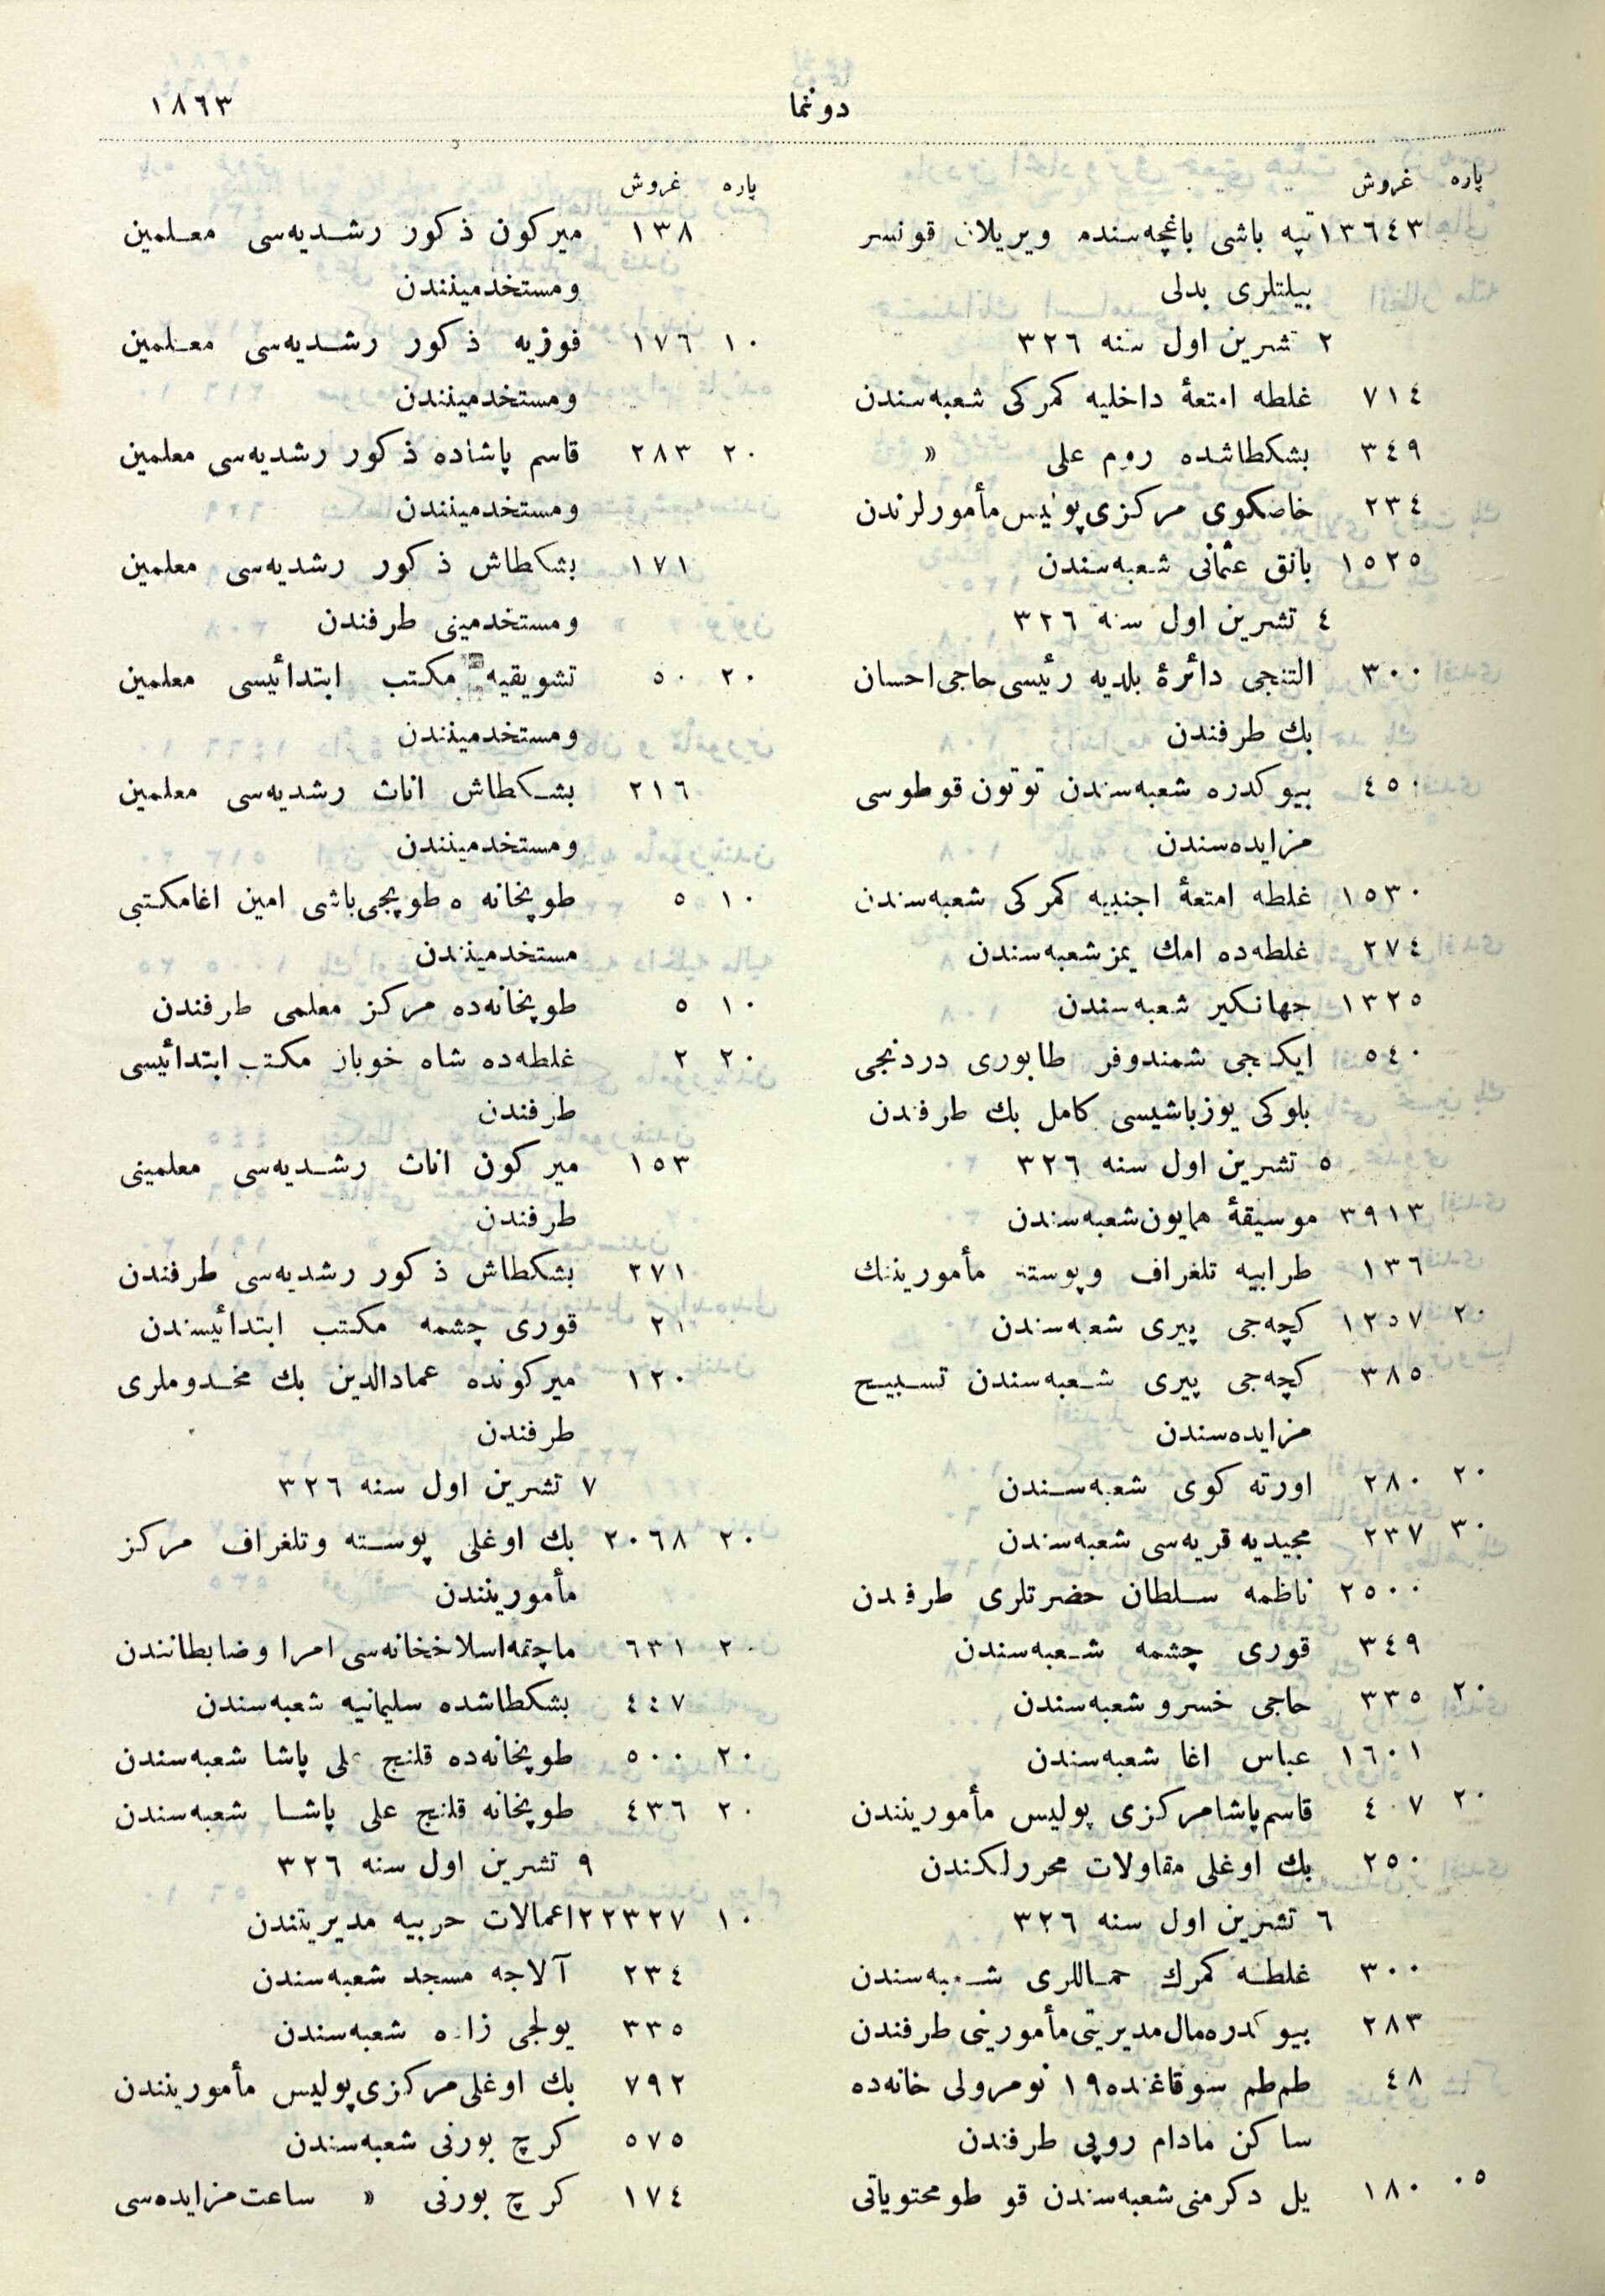 دونما
١٨٦٣
پاره غروش
١٣٦٤٣ تپه باشی باغچه‌سنده ویریلان قونسر
بیلتلری بدلی
٢ تشرین اول سنه ٣٢٦
٧١٤ غلطه امتعۀ داخلیه كمركی شعبه‌سندن
٣٤٩ بشكطاشده روم علی »
٢٣٤ خاصكوی مركزی پولیس مأمورلرندن
١٥٢٥ بانق عثمانی شعبه‌سندن
٤ تشرین اول سنه ٣٢٦
٣٠٠ التنجی دائرۀ بلدیه رئیسی حاجی احسان
بك طرفندن
٤٥٠ بیوكدره شعبه‌سندن توتون قوطوسی
مزایده‌سندن
١٥٣٠ غلطه امتعۀ اجنبیه كمركی شعبه‌سندن
٢٧٤ غلطه‌ده امك یمز شعبه‌سندن
١٣٢٥ جهانكیر شعبه‌سندن
٥٤٠ ایكنجی شمندوفر طابوری دردنجی
بلوكی یوزباشیسی كامل بك طرفندن
٥ تشرین اول سنه ٣٢٦
٣٩١٣ موسیقۀ همایون شعبه‌سندن
١٣٦ طرابیه تلغراف وپوسته مأمورینك
٢٠ ١٢٥٧ كچه‌جی پیری شعبه‌سندن
٣٨٥ كچه‌جی پیری شعبه‌سندن تسبیح
مزایده‌سندن
٢٠ ٢٨٠ اورته كوی شعبه‌سندن
٣٠ ٢٣٧ مجیدیه قریه‌سی شعبه‌سندن
٢٥٠٠ ناظمه سلطان حضرتلری طرفندن
٣٤٩ قوری چشمه شعبه‌سندن
٢٠ ٣٣٥ حاجی خسرو شعبه‌سندن
١٦٠١ عباس اغا شعبه‌سندن
٢٠ ٤٠٧ قاسم‌پاشا مركزی پولیس مأمورینندن
٢٥٠ بك اوغلی مقاولات محررلكندن
٦ تشرین اول سنه ٣٢٦
٣٠٠ غلطه كمرك حماللری شعبه‌سندن
٢٨٣ بیوكدره مال مدیریتی مأمورینی طرفندن
٤٨ طم‌طم سوقاغنده ١٩ نومرولی خانه‌ده
ساكن مادام روپی طرفندن
٠٥ ١٨٠ یل دكرمنی شعبه‌سندن قوطو محتویاتی
پاره غروش
١٣٨ میركون ذكور رشدیه‌سی معلمین
ومستخدمیندن
١٠ ١٧٦ فوزیه ذكور رشدیه‌سی معلمین
ومستخدمینندن
٢٠ ٢٨٣ قاسم پاشاده ذكور رشدیه‌سی معلمین
ومستخدمینندن
١٧١ بشكطاش ذكور رشدیه‌سی معلمین
ومستخدمینی طرفندن
٢٠ ٥٠ تشویقیه مكتب ابتدائیسی معلمین
ومستخدمینندن
٢١٦ بشكطاش اناث رشدیه‌سی معلمین
ومستخدمینندن
١٠ ٥ طوپخانه ه طوپجی باشی امین اغا مكتبی
مستخدمیندن
١٠ ٥ طوپخانه‌ده مركز معلمی طرفندن
٢٠ ٢ غلطه‌ده شاه خوبان مكتب ابتدائیسی
طرفندن
١٥٣ میركون اناث رشدیه‌سی معلمینی
طرفندن
٢٧١ بشكطاش ذكور رشدیه‌سی طرفندن
٢١ قوری چشمه مكتب ابتدائیسندن
١٢٠ میركونده عمادالدین بك مخدوملری
طرفندن
٧ تشرین اول سنه ٣٢٦
٢٠ ٢٠٦٨ بك اوغلی پوسته وتلغراف مركز
مأمورینندن
٢٠ ٦٣١ ماچقه اسلاخخانه‌سی امرا وضابطانندن
٤٤٧ بشكطاشده سلیمانیه شعبه‌سندن
٢٠ ٥٠٠ طوپخانه‌ده قلنج علی پاشا شعبه‌سندن
٢٠ ٤٣٦ طوپخانه قلنج علی پاشا شعبه‌سندن
٩ تشرین اول سنه ٣٢٦
١٠ ٢٢٣٢٧ اعمالات حربیه مدیریتندن
٢٣٤ آلاجه مسجد شعبه‌سندن
٣٣٥ یولجی زاده شعبه‌سندن
٧٩٢ بك اوغلی مركزی پولیس مأمورینندن
٥٧٥ كرچ بورنی شعبه‌سندن
١٧٤ كرچ بورنی » ساعت مزایده‌سی